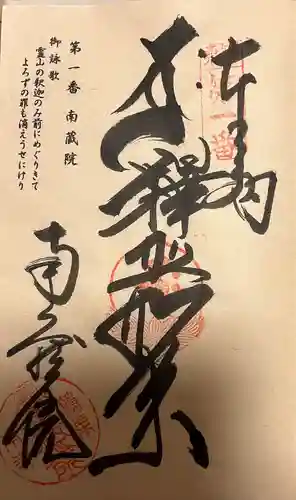 奉納
釋迦如来
南蔵院
第一番 南蔵院
御詠歌
霊山の釈迦のみ前にめぐりきて
よろずの罪も消えうせにけり